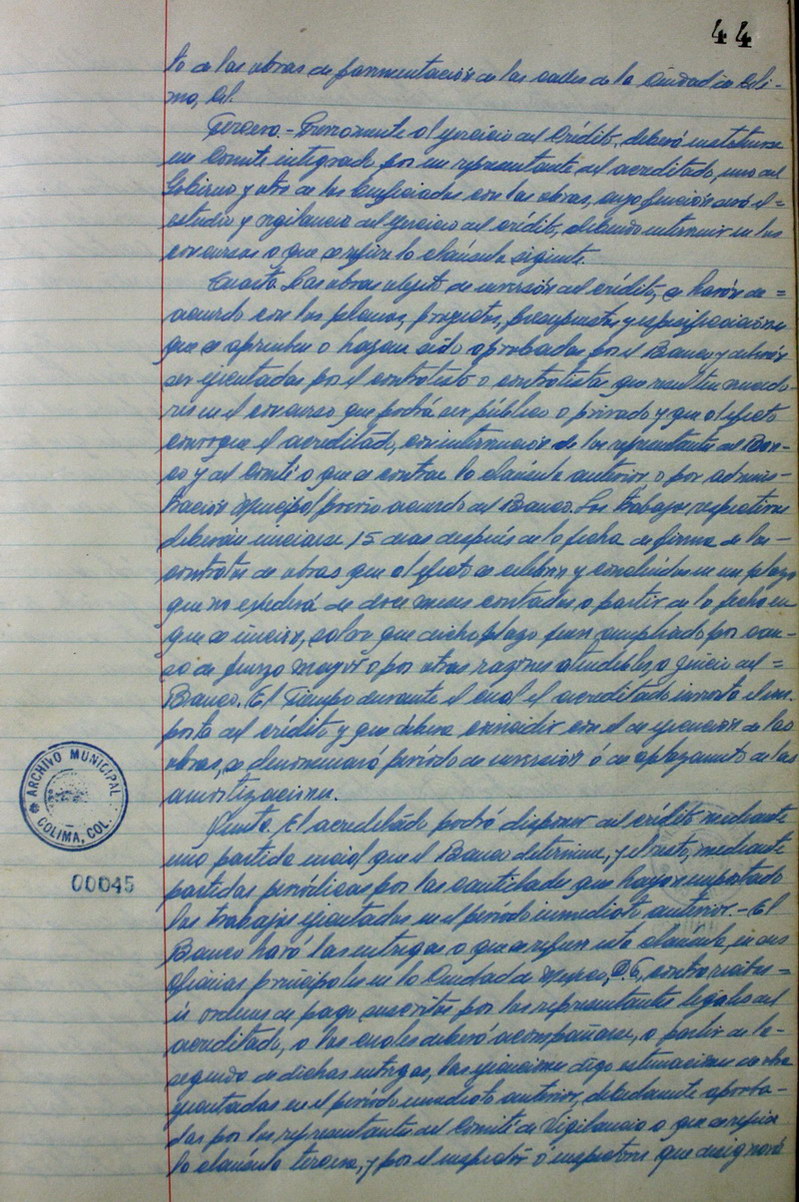 44
to de las obras de pavimentación de las calles de la Ciudad de Coli-
ma, Col.
Tercera.- Previamente al ejercicio del Crédito, deberá instituirse
un Comité integrado por un representante del acreditado, uno del
Gobierno y otro de los beneficiados con las obras, cuya función será el=
estudio y vigilancia del ejercicio del crédito, debiendo intervenir en los
concursos a que se refiere la cláusula siguiente.
Cuarta. Las obras objeto de inversión del crédito, se harán de=
acuerdo con los planos, proyectos, presupuestos y especificaciones
que se aprueben o hayan sido aprobados por el Banco y deberán
ser ejecutadas por el contratista o contratistas que resulten vencedo
res en el concurso que podrá ser público o privado y que al efecto
convoque el acreditado, con intervención de los representantes del Ban-
co y del Comité a que se contrae la cláusula anterior, o por adminis-
tración Municipal previo acuerdo del Banco. Los trabajos respectivos
deberán iniciarse 15 días después de la fecha de firma de los=
contratos de obras que al efecto se celebren y concluidos en un plazo
que no excederá de doce meses contados a partir de la fecha en
que se inicien, salvo que dicho plazo fuera ampliado por cau-
sa de fuerza mayor o por otras razones atendibles a juicio del=
Banco. El Tiempo durante el cual el acreditado invierta el im-
porte del crédito y que deberá coincidir con el de ejecución de las
obras, se denominará período de inversión ó de aplazamiento de las
amortizaciones.
Quinta. El acreditado podrá disponer del crédito mediante
una partida inicial que el Banco determine, y el resto, mediante
partidas periódicas por las cantidades que hayan importado
los trabajos ejecutados en el período inmediato anterior.- El
Banco hará las entregas a que se refiere esta cláusula, en sus
oficinas principales en la Ciudad de Mexico, D.F., contra recibos=
ú ordenes de pago suscritos por los representantes legales del
acreditado, a los cuales deberá acompañarse, a partir de la-
segunda de dichas entregas, las ejecuciones digo estimaciones de obra
ejecutadas en el período inmediato anterior, debidamente aproba-
das por los representantes del Comité de Vigilancia a que se refiere
la cláusula tercera, y por el inspector ó inspectores que designará
ARCHIVO MUNICIPAL
COLIMA, COL.
00045